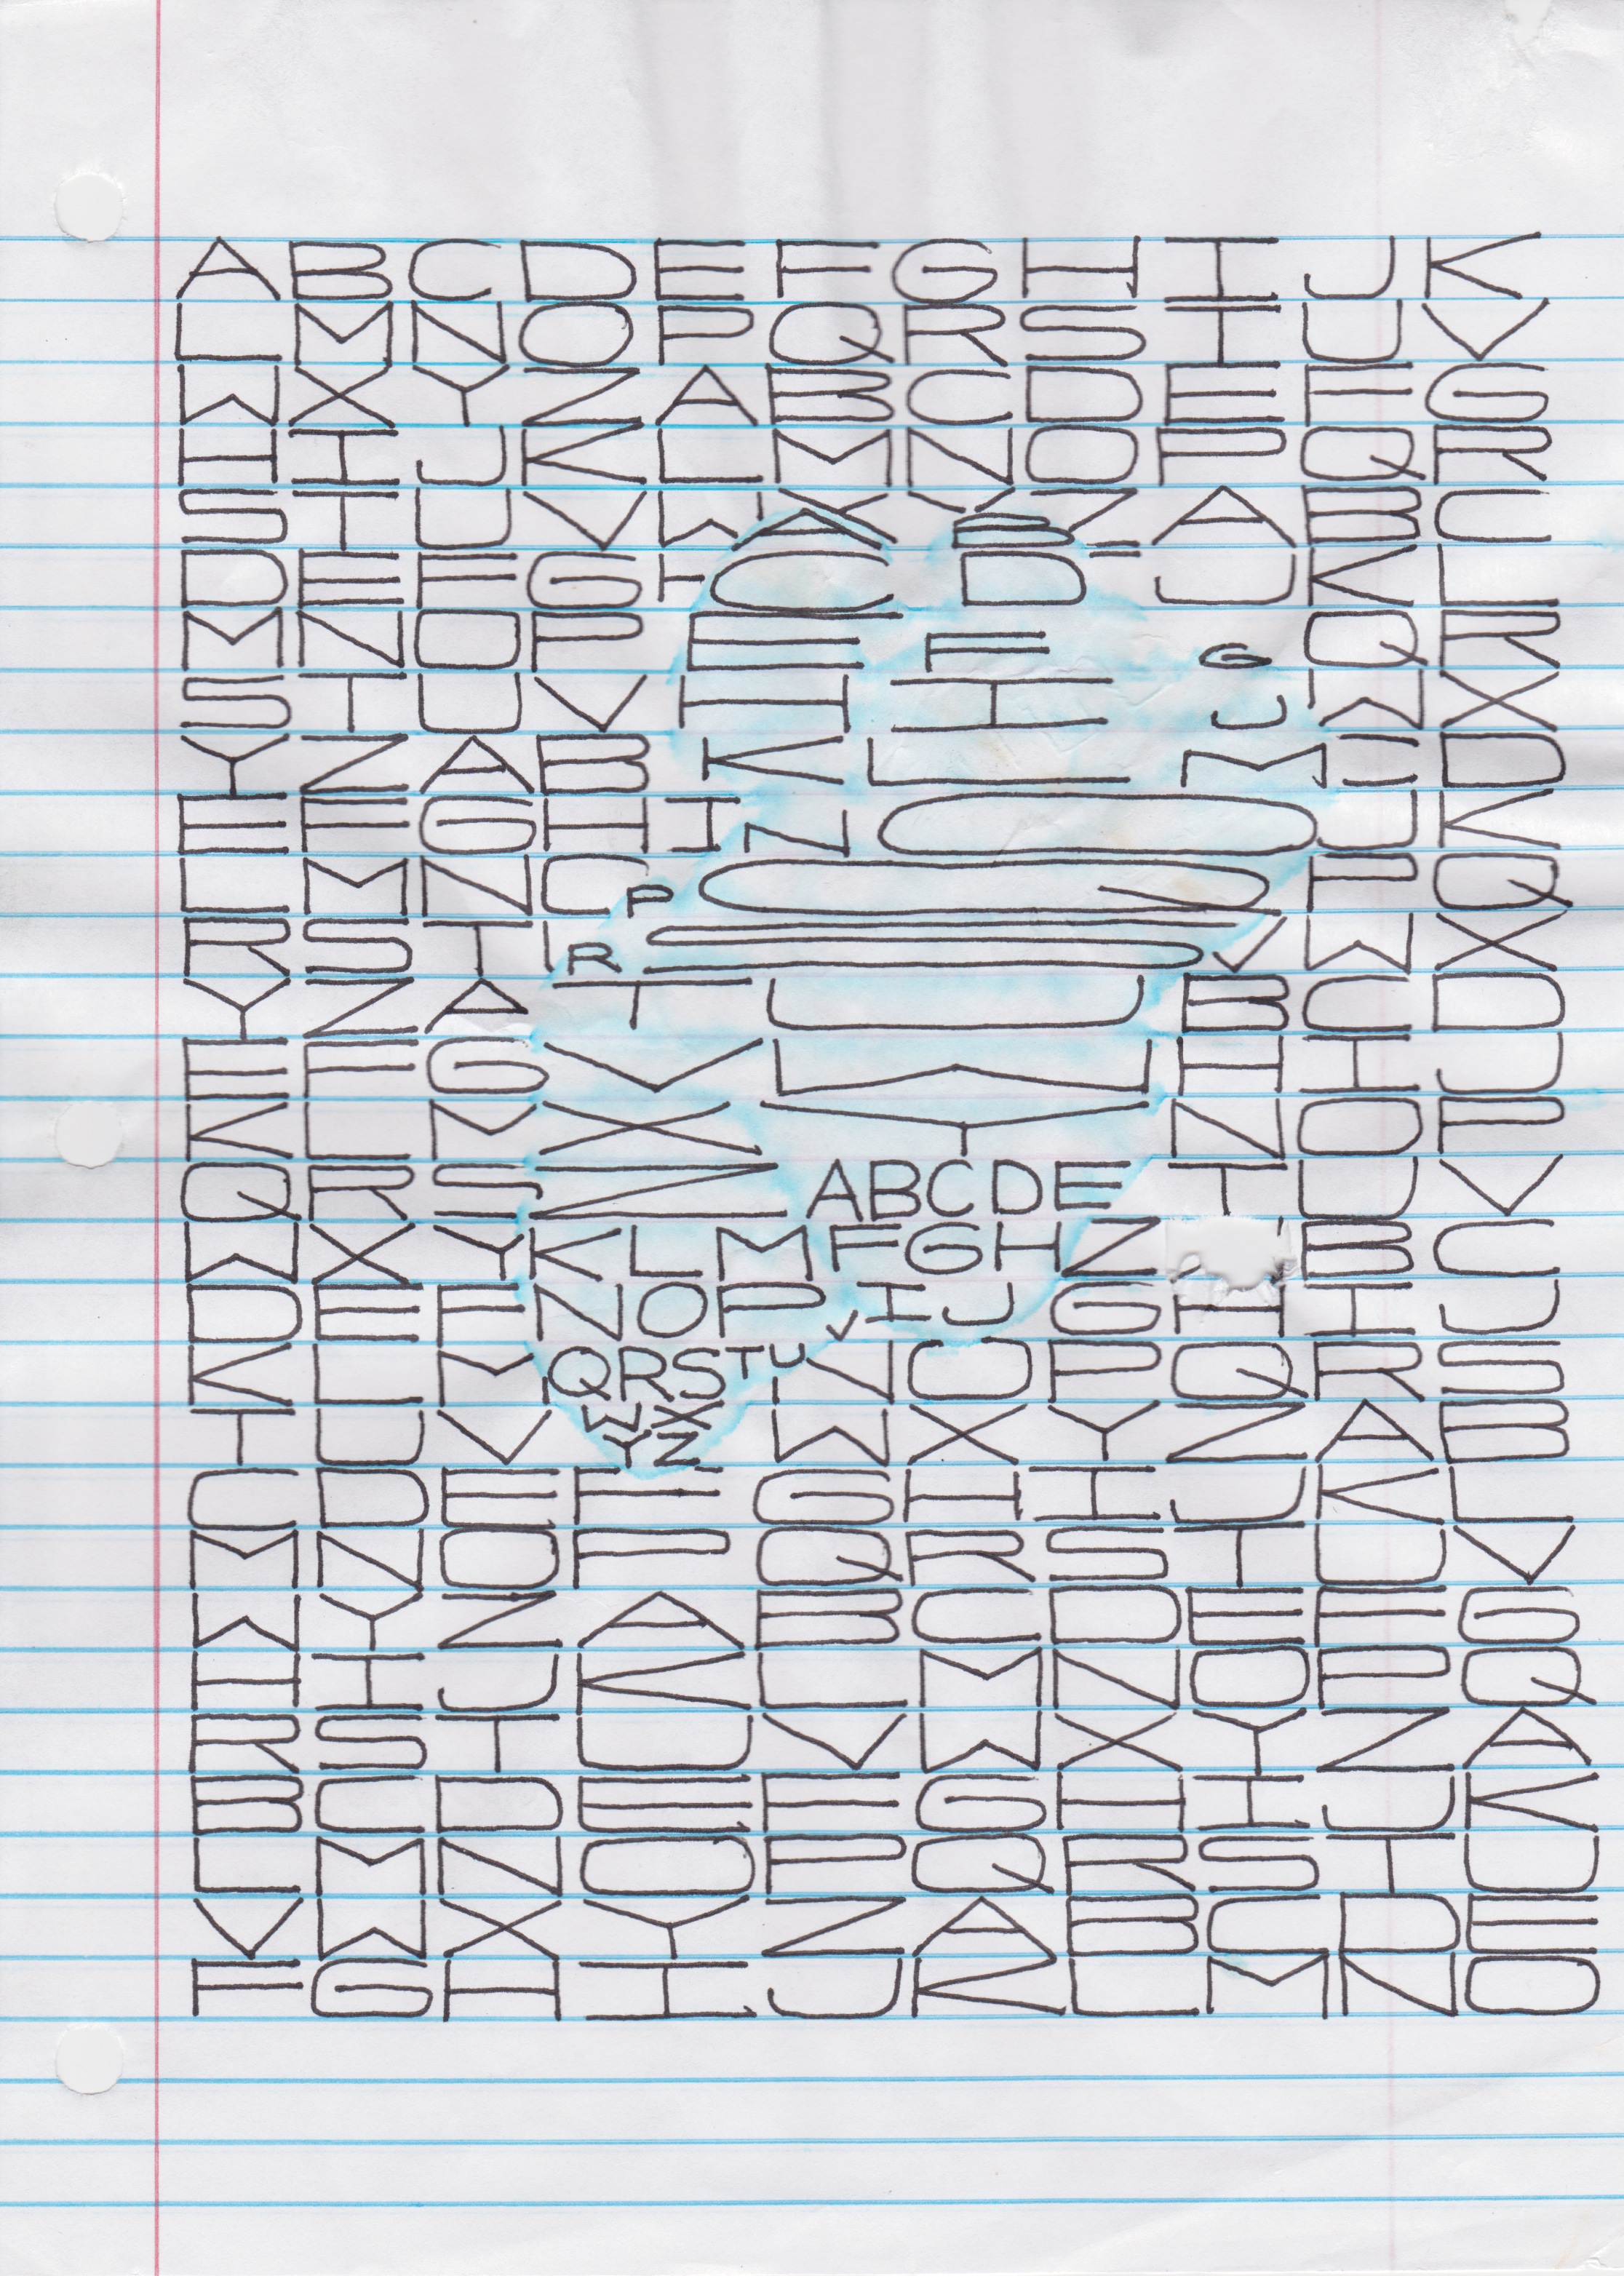 A B C D E F G H I J K
L M N O P Q R S T U V
W X Y Z A B C D E F G
H I J K L M N O P Q R
S T U V W X A Y B Z A B C
D E F G H C D J K L
M N O P E F G Q R
S T U V H I J W X
Y Z A B K L M C D
E F G H I N O J K
L M N C P Q P Q
R S T R S V W X
Y Z A T U B C D
E F G V W H I J
K L M X Y N O P
Q R S Z A B C D E T U V
W X Y K L M F G H Z B C
D E F N O P V I J G H I J
K L M Q R S T U N O P Q R S
T U V W X W X Y Z A B
Y Z
C D E F G H I J K L
M N O P Q R S T U V
W Y Z A B C D E F G
H I J K L M N O P Q
R S T U V W X Y Z A
B C D E F G H I J K
L M N O P Q R S T U
V W X Y Z A B C D E
F G H I J K L M N O